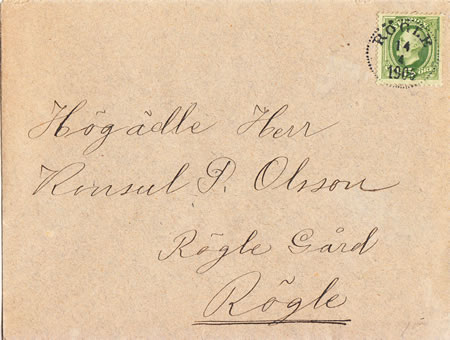 RÖGLE
14
4
Högädle Herr
Konsul P. Olsson
Rögle Gård
Rögle